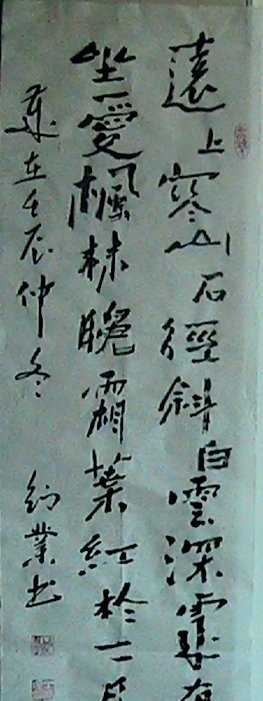 遠上寒山石徑斜白雲深處有
坐愛楓林晚霜葉紅於二月
歲在壬辰仲冬
業书